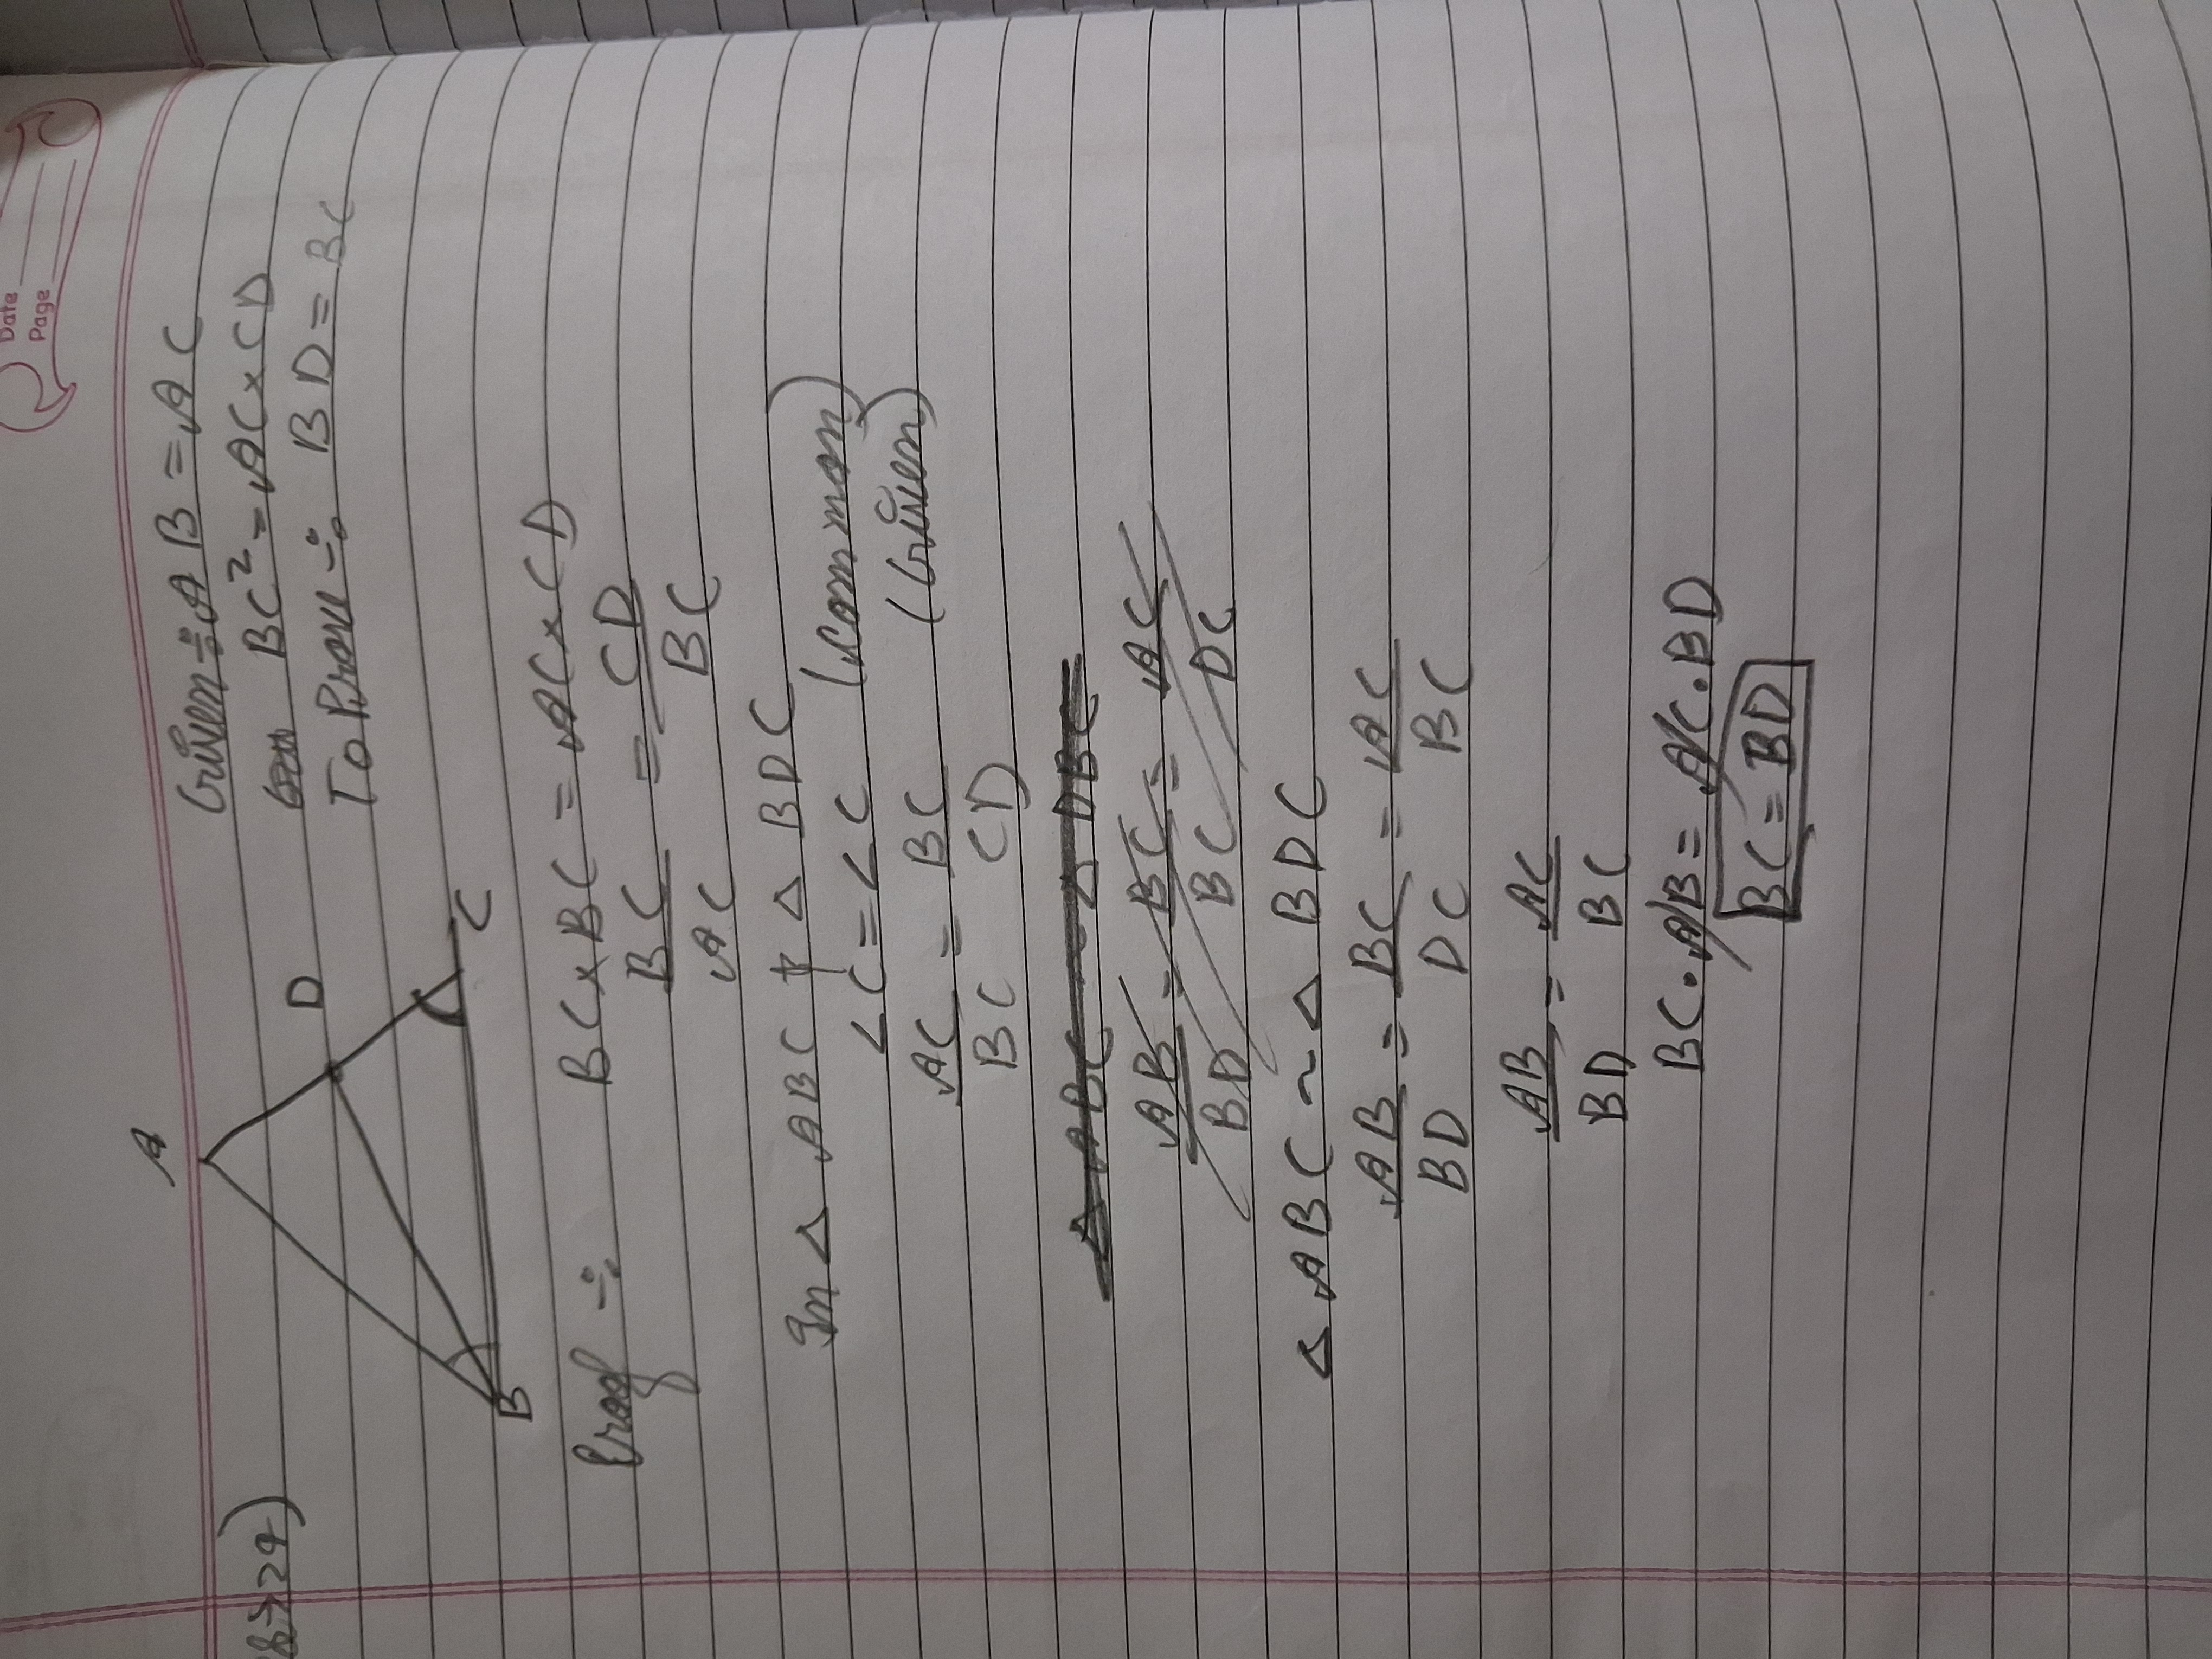 Date
Page
Q>24)
A
D
B
C
Given ÷ AB = AC
BC² = AC × CD
To Prove ÷ BD = BC
Proof ÷ BC × BC = AC × CD
BC/AC = CD/BC
In △ ABC & △ BDC
∠C = ∠C (Common)
AC/BC = BC/CD (Given)
△ ABC ~ △ DBC
AB/BD = BC/BC = AC/DC
△ ABC ~ △ BDC
AB/BD = BC/DC = AC/BC
AB/BD = AC/BC
BC . AB = AC . BD
BC = BD